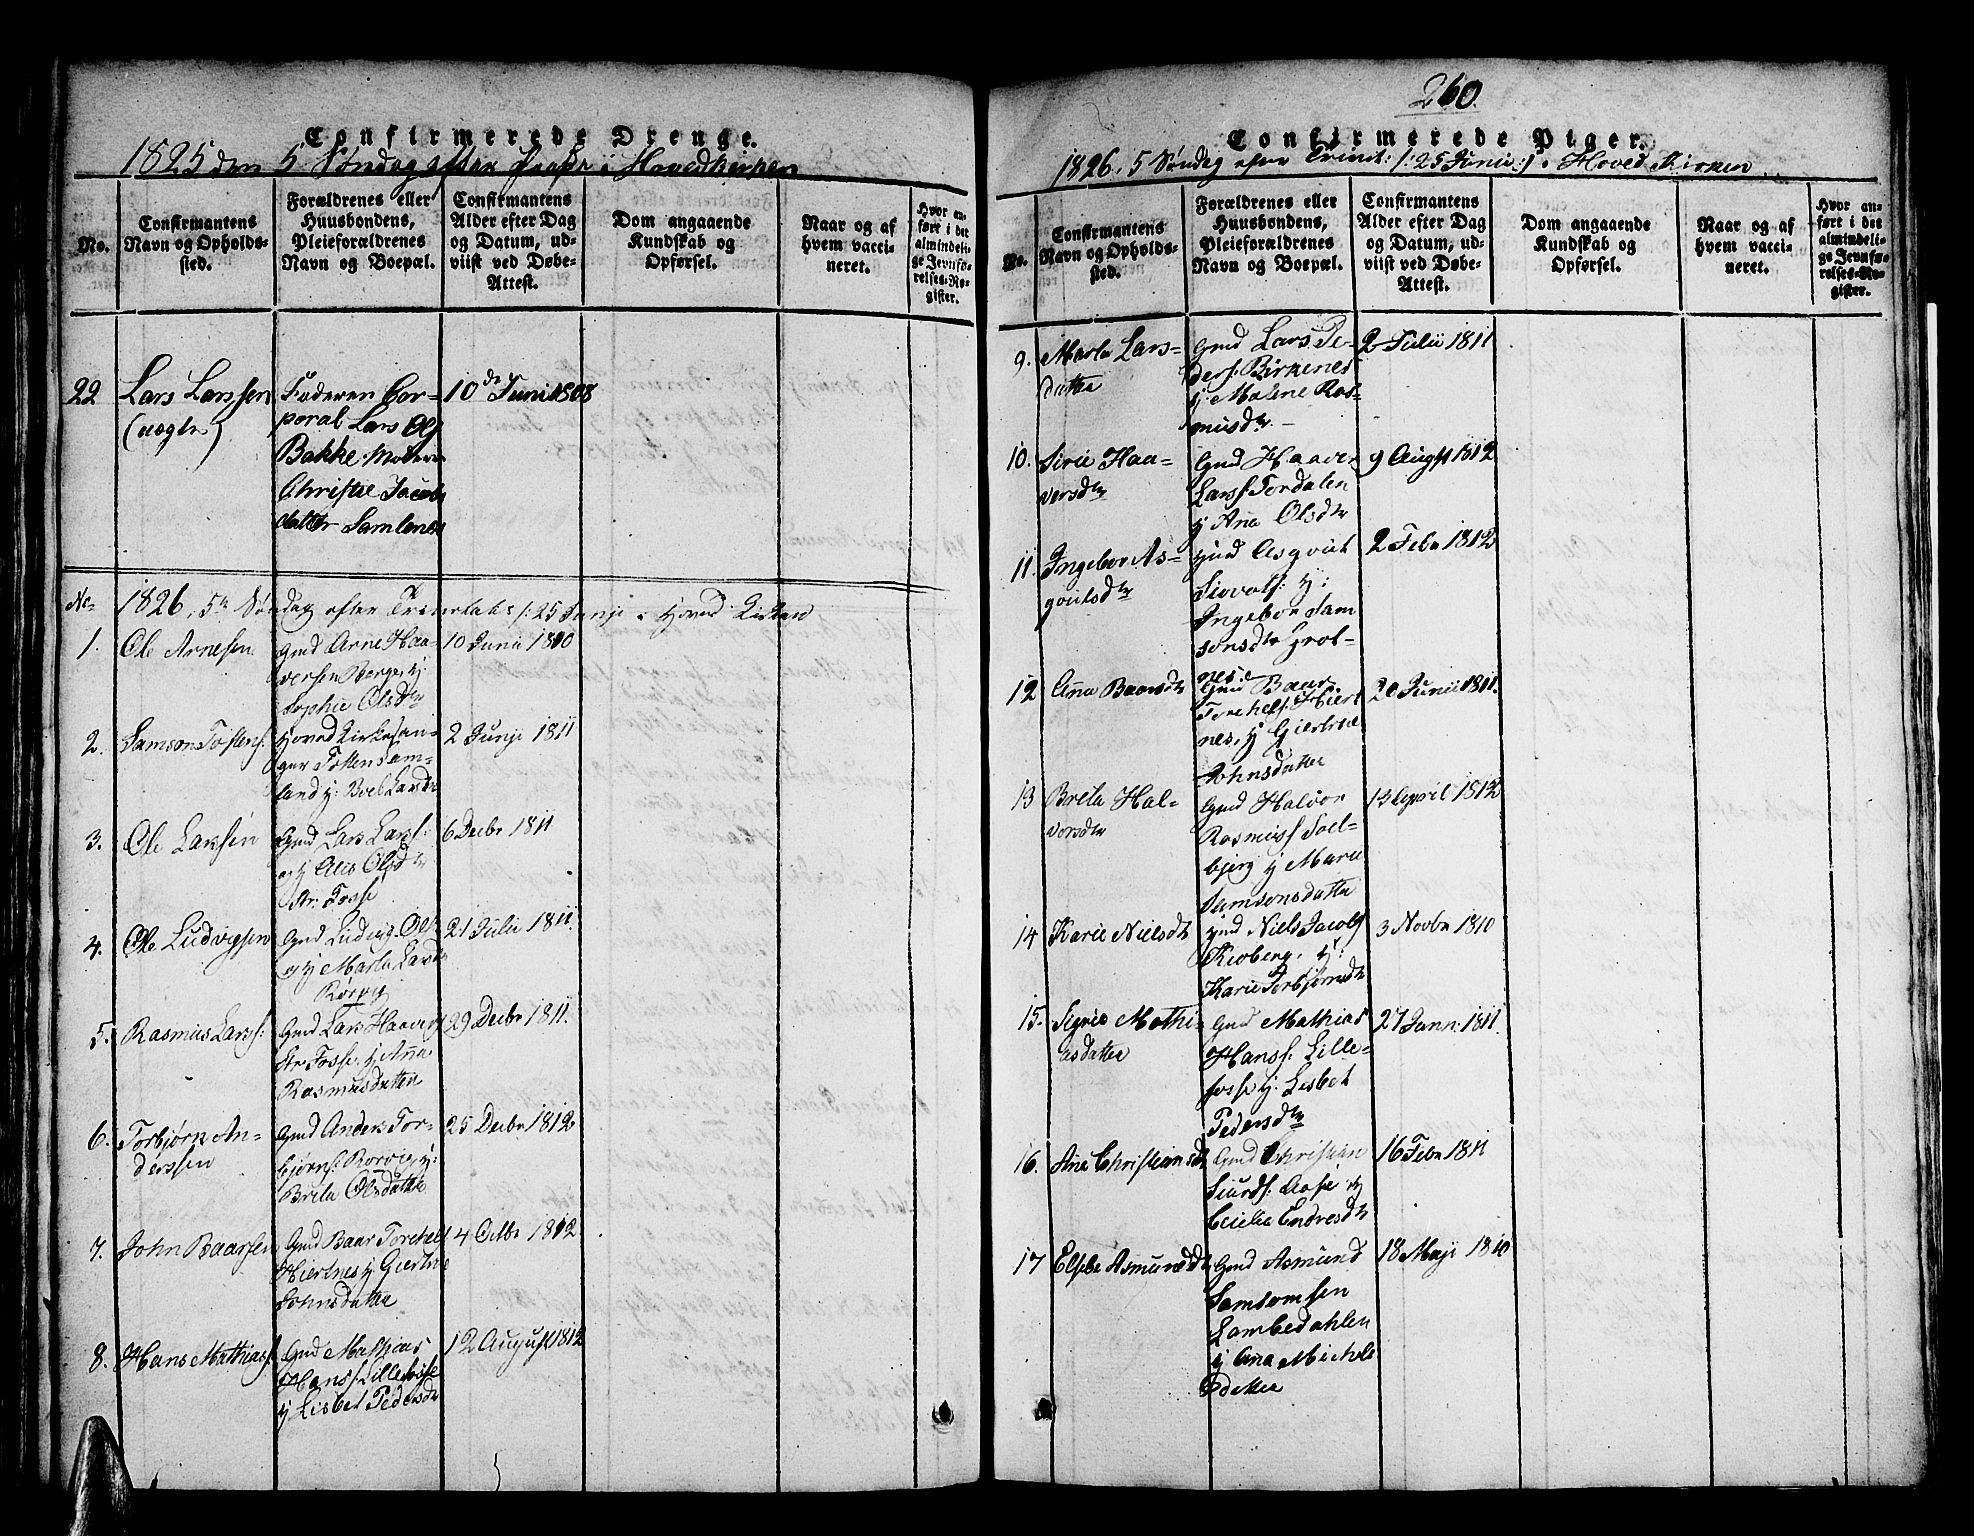 Confirmerede Drenge.
1825 den 5 Søndag efter Paaske i Hovedkirken
No.
Confirmantens
Navn og Opholds-
sted.
Forældrenes eller
Huusbondens,
Pleieforældrenes
Navn og Boepæl.
Confirmantens
Alder efter Dag
og Datum, ud-
viist ved Døbe-
Attest.
Dom angaaende
Kundskab og
Opførsel.
Naar og af
hvem vacci-
neret.
Hvor an-
ført i det
almindeli-
ge Jevnfø-
relses-Re-
gister.
22
Lars Larssen
(uægte)
Faderen Cor-
poral Lars Ols
Bakke. Moderen
Christie Jacobs
datter Samlenes
10de Juni 1808
No
1826, 5te Søndag efter Trinitatis /: 25 Junji i Hoved Kirken
1.
Ole Arnesen
Gmd Arne Haa-
versen Berge, &
Sophie Olsdtr
10 Junii 1810
2.
Samson Tostens.
Hoved Kirkesan-
ger Tosten Sam-
land &: Boel Larsdtr
2 Junji 1811
3.
Ole Larsen
Gmd Lars Lars:
& Olsdtr
Str: Fosse
6 Decbr 1811
4.
Ole Ludvigsen
Gmd Ludvig Ols:
& Marta Larsdtr
Rørvig
21 Julii 1811.
5.
Rasmus Lars:
Gmd Lars Haavers
Str: Fosse, & Anna
Rasmusdatter
29 Decbr 1811.
6.
Torbjørn An-
derssen
Gmd Anders Tor-
bjørns: Rørvig, &:
Brita Olsdatter
25 Decbr 1812
7.
John Baarsen
Gmd Baar Torchels
Hiertnes & Giertrue
Johnsdatter
4 Octbr 1812
8.
Hans Mathias:
Gmd Mathias
Hans: Lillefosse
& Lisbet Pedersdtr
12 August 1812
260.
Confirmerede Piger.
1826. 5 Søndag efter Trinit: /: 25 Junii :/ i Hoved Kirken
No.
Confirmantens
Navn og Opholds-
sted.
Forældrenes eller
Huusbondens,
Pleieforældrenes
Navn og Boepæl.
Confirmantens
Alder efter Dag
og Datum, ud-
viist ved Døbe-
Attest.
Dom angaaende
Kundskab og
Opførsel.
Naar og af
hvem vacci-
neret.
Hvor an-
ført i det
almindeli-
ge Jevnfø-
relses-Re-
gister.
9.
Marta Lars-
datter
Gmd Lars Pe-
ders: Birkenes
& Malene Ras-
musdtr
2 Julii 1811
10.
Sirie Haa-
versdtr
Gmd Haaver
Lars: Tordalen
& Ana Olsdtr
9 Augst 1812
11.
Ingebor As-
goutsdtr
Gmd Asgout
Siovats: &:
Ingebor Sam
sonsdtr Grot-
nes
2 Febr 1812
12
Anna Baarsdtr
Gmd Baar
Torchels: Hiert
nes, & Giertrue
Johnsdatter
20 Junii 1811.
13
Brita Hal-
versdtr
Gmd Halvor
Rasmuss Soel-
bjerg & Marie
Samsonsdatter
13 April 1812
14
Karie Nielsdtr
Gmd Niels Jacobs
Kioberg, &:
Karie Torbjørnsdtr
3 Novbr 1810
15.
Sigrie Mathi
asdatter
Gmd Mathias
Hanss: Lille-
fosse &: Lisbet
Pedersdtr
27 Jann: 1811.
16.
Ane Christiansdtr
Gmd Christian
Siurds: Aase &
Ceicilia Endresdtr
16 Febr 1811
17
Elsebe Asmundsdtr
Gmd Asmund
Samsomsen
Lambedahlen
& Ana Michels
datter
18 Maji 1810